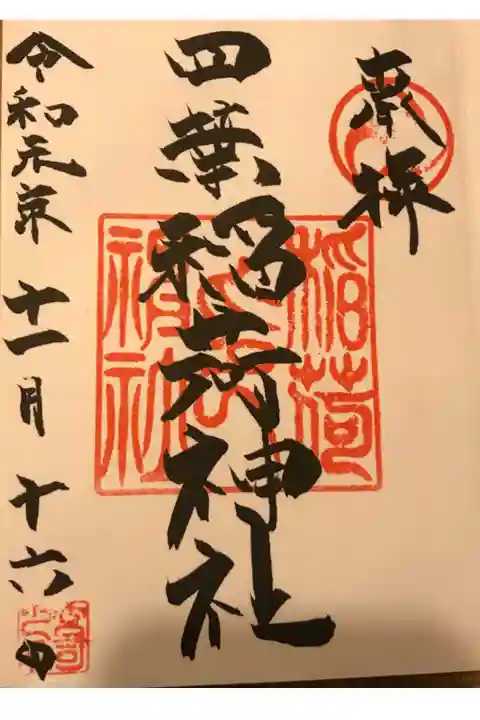 奉拝
四葉稲荷神社
令和元年十一月十六日
稲荷
神社